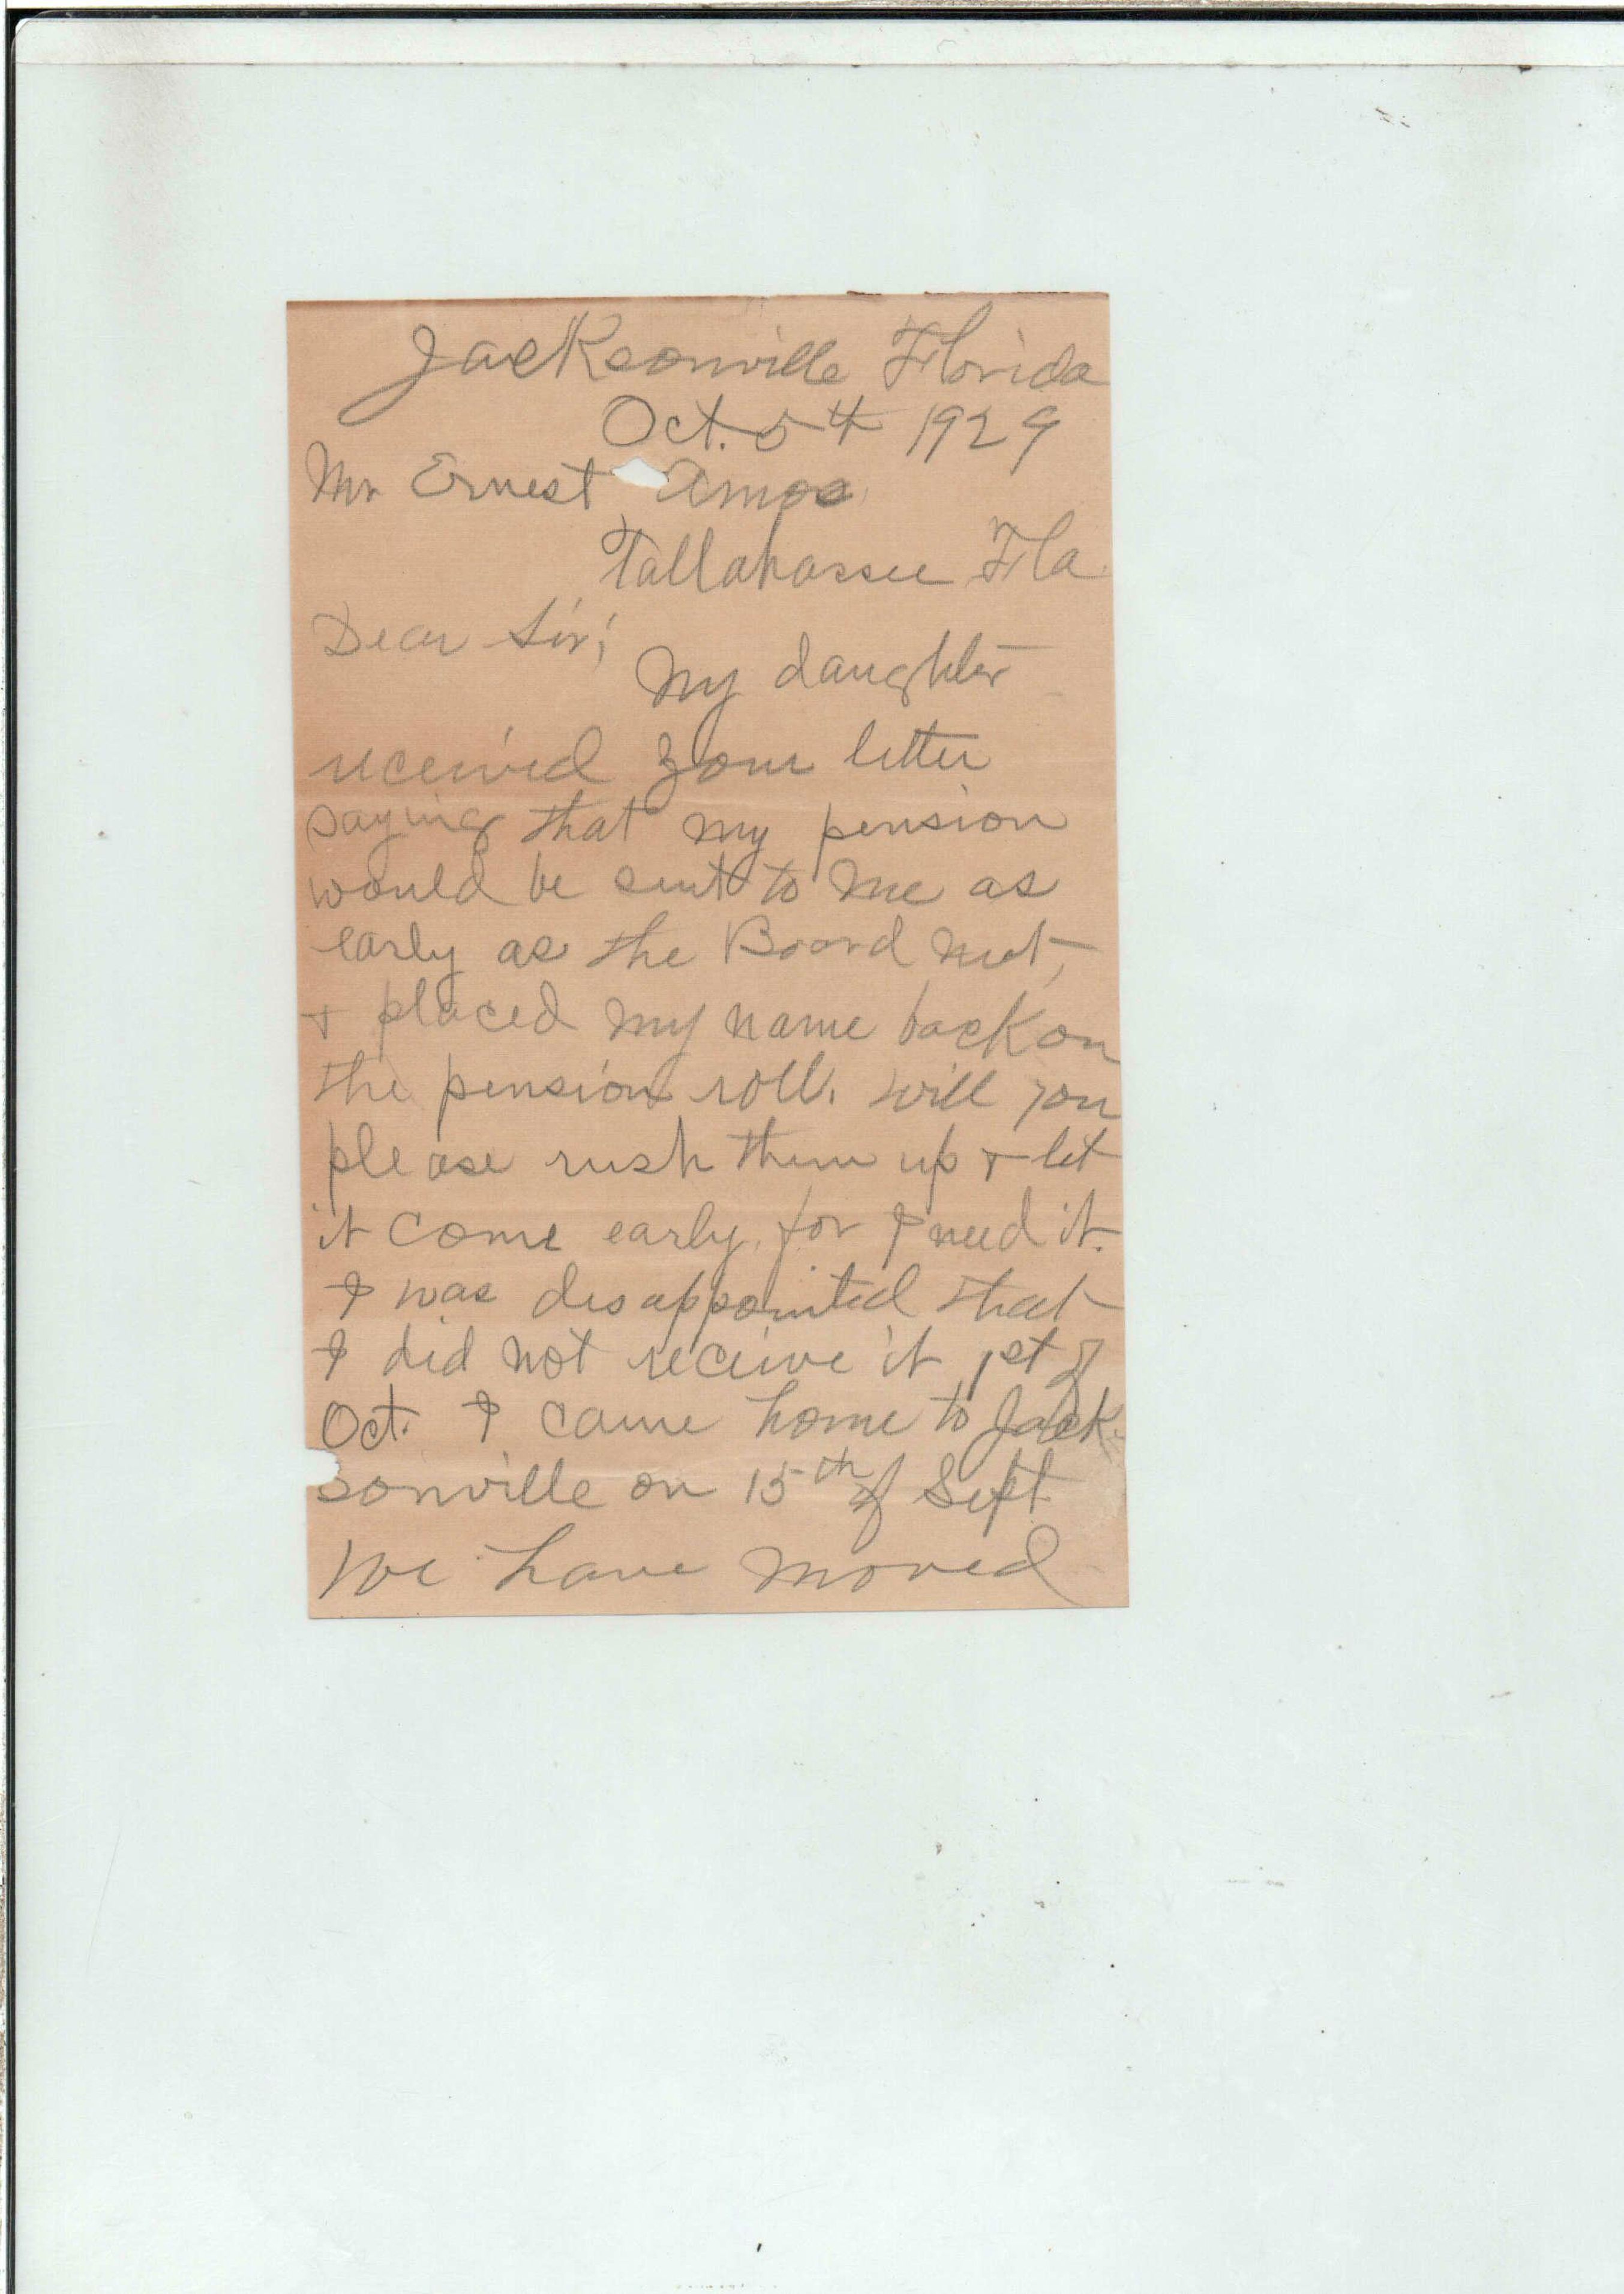 Jacksonville Florida
Oct. 5th 1929
Mr Ernest Amos
Tallahassee Fla.
Dear Sir;
My daughter
received your letter
saying that my pension
would be sent to me as
early as the Board met,
+ placed my name back on
the pension roll. will you
please rush them up + let
it come early, for I need it.
I was disappointed that
I did not receive it 1st of
Oct. I came home to Jack-
sonville on 15th of Sept
We have moved